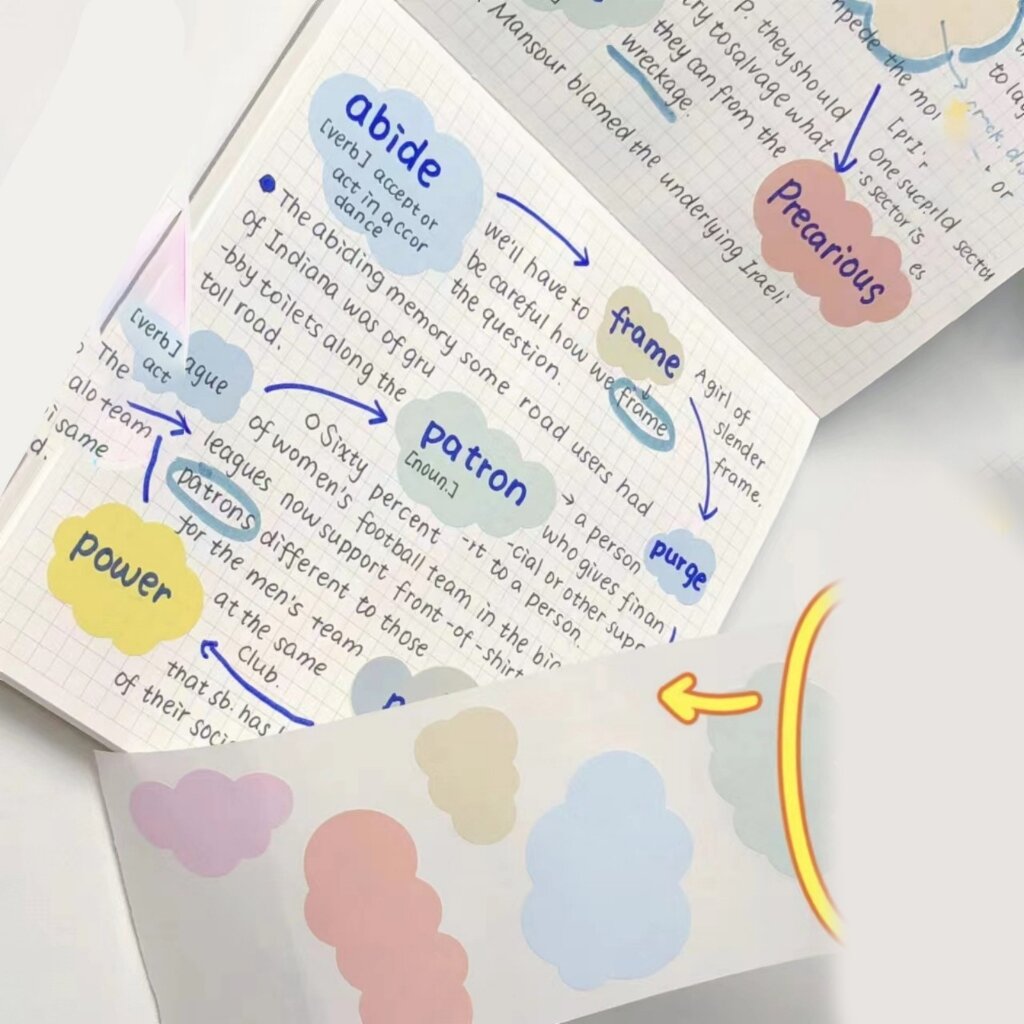 abide
[verb] accept or
act in accor
dance
The abiding memory some road users had
of Indiana was of gru
-bby toilets along the
toll road.
we'll have to
be careful how we frame
the question.
frame
A girl of
slender
frame.
purge
[verb] ague
act
The
alo team
same
d.
O Sixty percent -rt -cial or other supp
of women's football team in the big
leagues now support front-of-shirt
patrons different to those
for the men's team
at the same
Club.
patron
[noun.]
→ a person
who gives finan
to a person.
power
that sb. has
of their soci
P. they should
try to salvage what
they can from the
wreckage.
Mansour blamed the underlying Iraeli
mpede the mo
to la
crack.
or
[prI
One sucprld sector
's sector is
es
Precarious